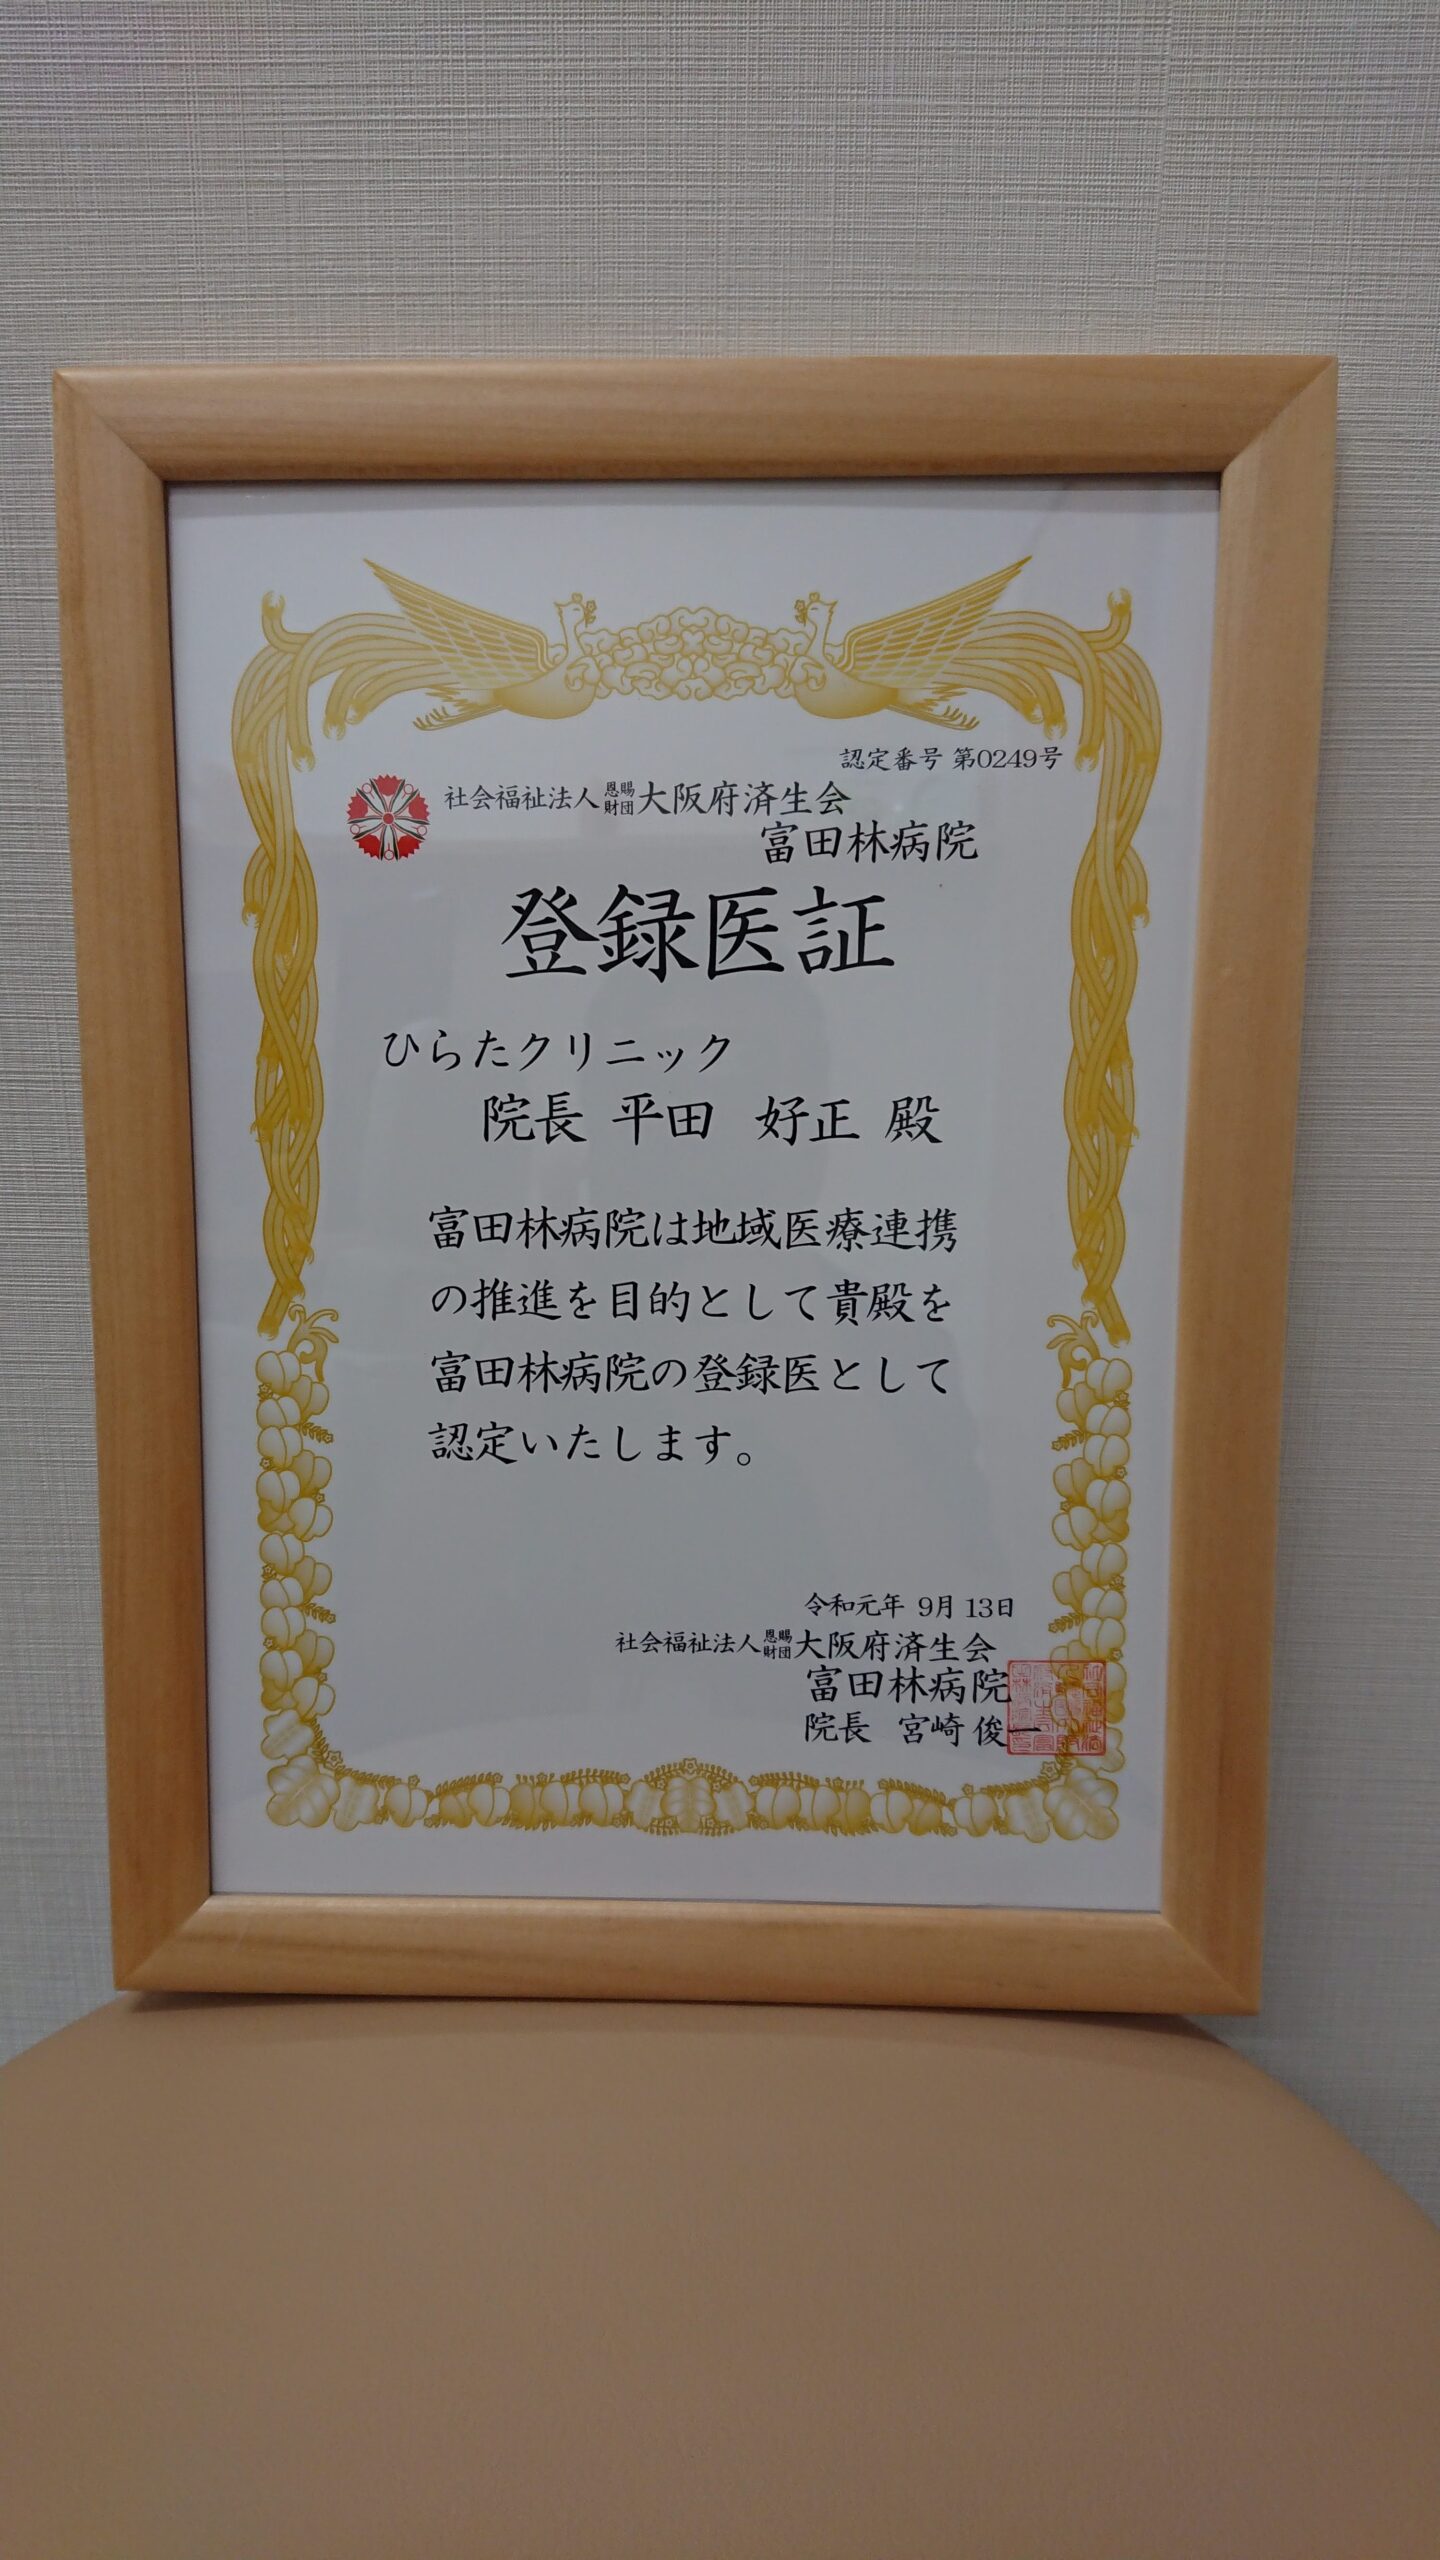 認定番号 第0249号
社会福祉法人 恩賜財団 大阪府済生会
富田林病院
登録医証
ひらたクリニック
院長 平田 好正 殿
富田林病院は地域医療連携
の推進を目的として貴殿を
富田林病院の登録医として
認定いたします。
令和元年 9月 13日
社会福祉法人 恩賜財団 大阪府済生会
富田林病院
院長 宮崎 俊一